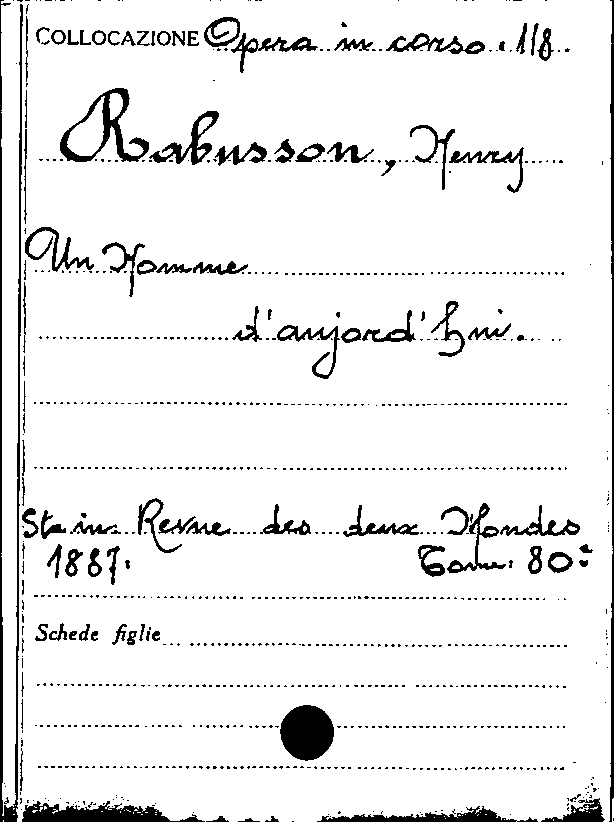 COLLOCAZIONE Opera in corso. 118.
Rabusson, Henry
Un Homme
d'aujord'hui.
Sta in: Revue des deux Mondes
1887. Tome: 80º
Schede figlie